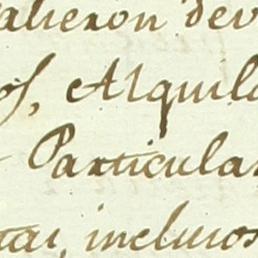 valieron dev
os, Alquila
Particular
tas, inclusos